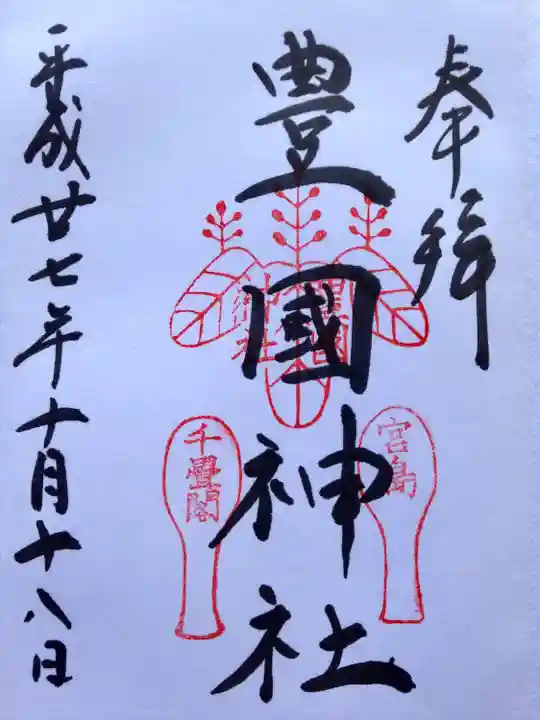 奉拜
豊國神社
豊國
神社
宮島
千疊閣
平成廿七年十月十八日